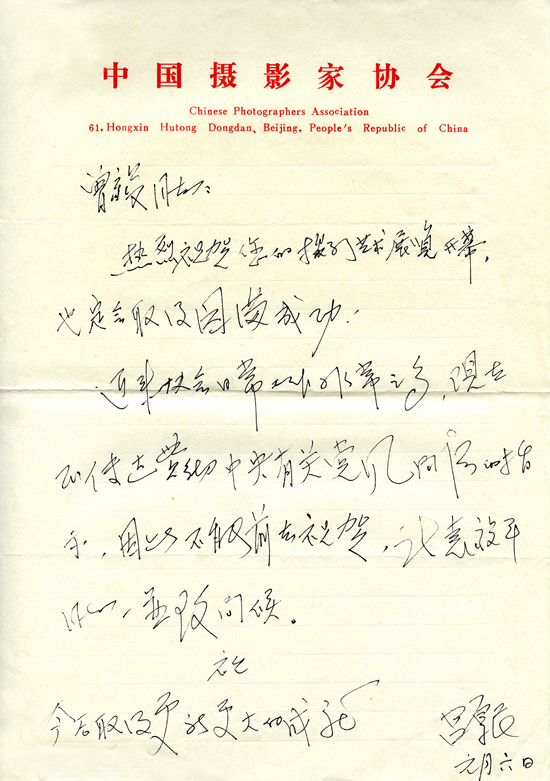 中国摄影家协会
Chinese Photographers Association
61, Hongxin Hutong Dongdan、Beijing, People's Republic of China
曾毅同志:
热烈祝贺您的摄影艺术展览开幕,
也定会取得圆满成功!
近来协会日常工作非常之多,现在
正传达贯彻中央有关党风问题的指
示,因此不能前去祝贺,
并致问候。
祝
今后取得更新更大的成就
吕厚民
元月六日